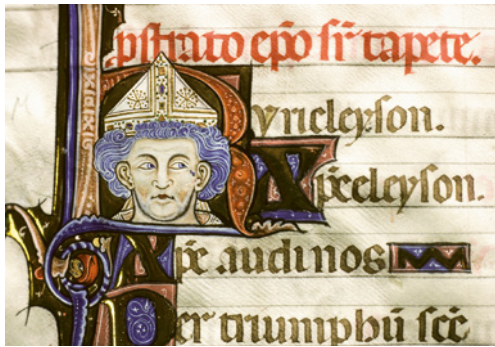 pstrato epo sr tapete.
Kyrieleyson.
Xpeeleyson.
Xpe audinos
Per triumphu sce